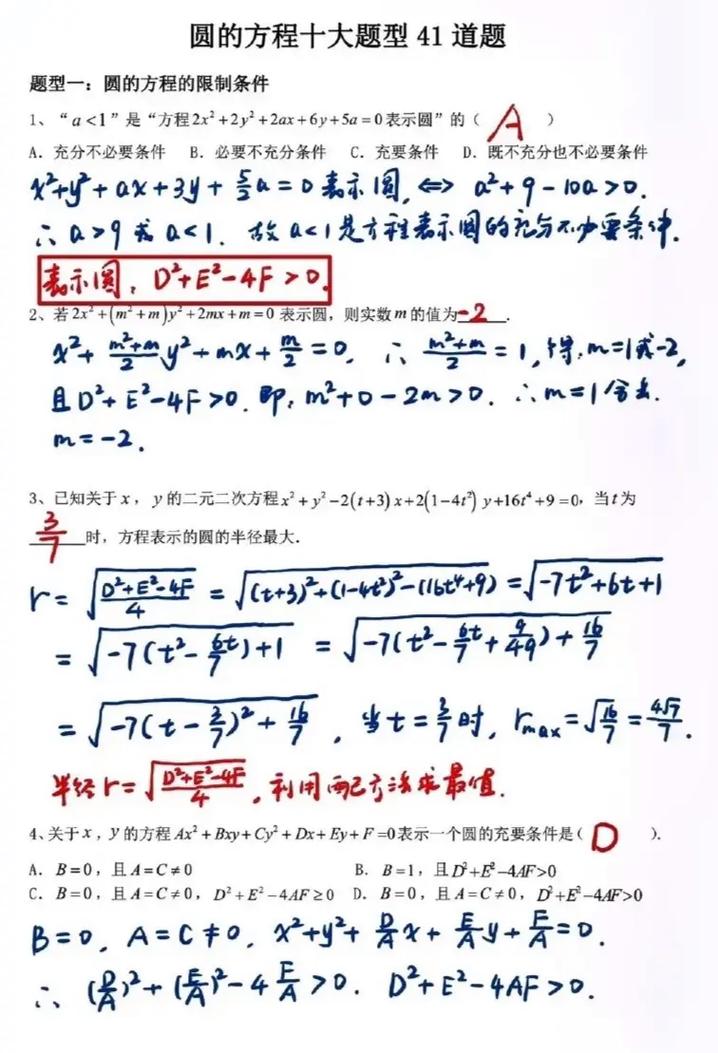 圆的方程十大题型 41 道题
题型一：圆的方程的限制条件
1、“a<1”是“方程2x²+2y²+2ax+6y+5a=0表示圆”的（ A ）
A．充分不必要条件 B．必要不充分条件 C．充要条件 D．既不充分也不必要条件
x²+y²+ax+3y+5/2a=0表示圆，⇔ a²+9-10a>0.
∴a>9或a<1. 故a<1是方程表示圆的充分不必要条件.
表示圆，D²+E²-4F>0.
2、若2x²+(m²+m)y²+2mx+m=0 表示圆，则实数m的值为-2.
x²+(m²+m)/2y²+mx+m/2=0, ∴(m²+m)/2=1,得,m=1或-2,
且D²+E²-4F>0. 即,m²+0-2m>0. ∴m=1舍去.
m=-2.
3、已知关于x，y的二元二次方程x²+y²-2(t+3)x+2(1-4t²)y+16t⁴+9=0，当t为
3/7时，方程表示的圆的半径最大．
r=√((D²+E²-4F)/4)=√((t+3)²+(1-4t²)²-(16t⁴+9))=√(-7t²+6t+1)
=√(-7(t²-6t/7)+1) =√(-7(t²-6t/7+9/49)+16/7)
=√(-7(t-3/7)²+16/7), 当t=3/7时, rmax=√(16/7)=4√7/7.
半径r=√((D²+E²-4F)/4), 利用配方法求最值.
4、关于x，y的方程Ax²+Bxy+Cy²+Dx+Ey+F=0表示一个圆的充要条件是( D ).
A．B=0，且A=C≠0 B．B=1，且D²+E²-4AF>0
C．B=0，且A=C≠0，D²+E²-4AF≥0 D．B=0，且A=C≠0，D²+E²-4AF>0
B=0, A=C≠0, x²+y²+D/Ax+E/Ay+F/A=0.
∴(D/A)²+(E/A)²-4F/A>0. D²+E²-4AF>0.